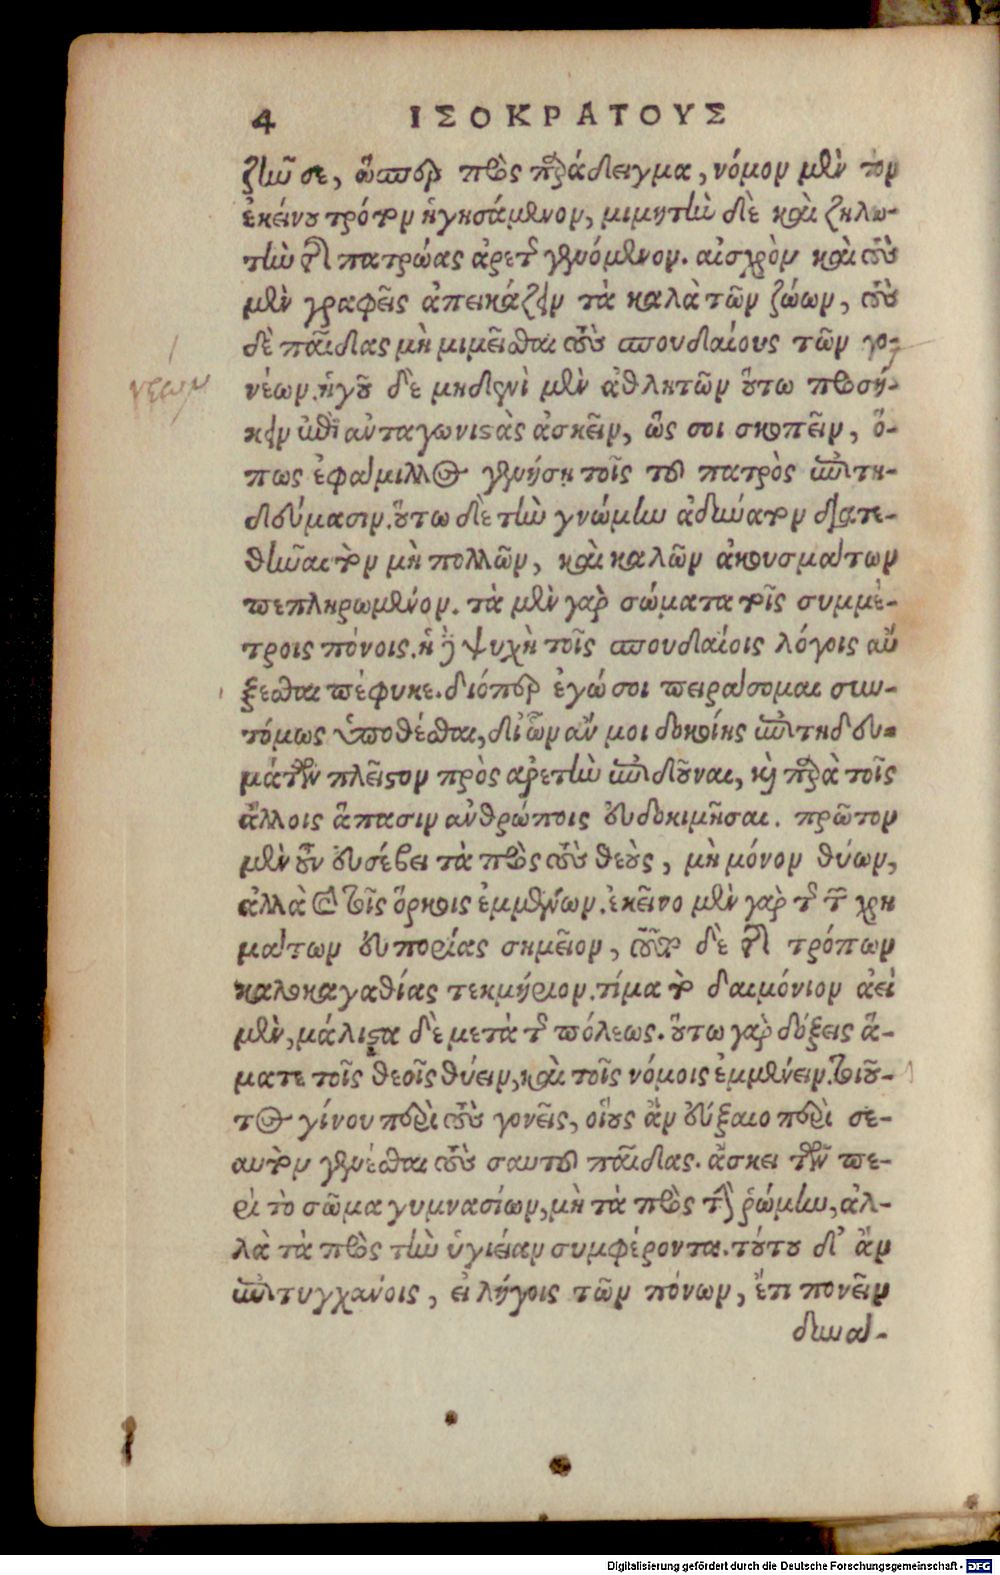 4 ΙΣΟΚΡΑΤΟΥΣ
ζῆν σε, ὥσπερ πρὸς παράδειγμα, νόμον μὲν τὸν
ἐκείνου τρόπον ἡγησάμενον, μιμητὴν δὲ καὶ ζηλω-
τὴν τῆς πατρῴας ἀρετῆς γενόμενον. αἰσχρὸν καὶ τοὺς
μὲν γραφεῖς ἀπεικάζειν τὰ καλὰ τῶν ζώων, τοὺς
δὲ παῖδας μὴ μιμεῖσθαι τοὺς σπουδαίους τῶν γο-
νέων. ἡγοῦ δὲ μηδενὶ μὲν ἀθλητῶν οὕτω προσή-
κειν ἐπὶ ἀνταγωνιστὰς ἀσκεῖν, ὥς σοι σκοπεῖν, ὅ-
πως ἐφάμιλλος γενήσῃ τοῖς τοῦ πατρὸς ἐπιτη-
δεύμασιν. οὕτω δὲ τὴν γνώμην ἀδύνατον διατε-
θῆναι τὸν μὴ πολλῶν, καὶ καλῶν ἀκουσμάτων
πεπληρωμένον. τὰ μὲν γὰρ σώματα τοῖς συμμέ-
τροις πόνοις. ἡ δὲ ψυχὴ τοῖς σπουδαίοις λόγοις αὔ
ξεσθαι πέφυκε. διόπερ ἐγώ σοι πειράσομαι συν-
τόμως ὑποθέσθαι, δι' ὧν ἄν μοι δοκοίης ἐπιτηδευ-
μάτων πλεῖστον πρὸς ἀρετὴν ἐπιδοῦναι, καὶ παρὰ τοῖς
ἄλλοις ἅπασιν ἀνθρώποις εὐδοκιμῆσαι. πρῶτον
μὲν οὖν εὐσέβει τὰ πρὸς τοὺς θεούς, μὴ μόνον θύων,
ἀλλὰ καὶ τοῖς ὅρκοις ἐμμένων. ἐκεῖνο μὲν γὰρ τῆς τῶν χρη
μάτων εὐπορίας σημεῖον, τοῦτο δὲ τῆς τρόπων
καλοκαγαθίας τεκμήριον. τίμα τὸ δαιμόνιον ἀεὶ
μὲν, μάλιστα δὲ μετὰ τῆς πόλεως. οὕτω γὰρ δόξεις ἅ-
ματε τοῖς θεοῖς θύειν, καὶ τοῖς νόμοις ἐμμένειν. τοιοῦ-
τος γίνου περὶ τοὺς γονεῖς, οἵους ἂν εὔξαιο περὶ σε-
αυτὸν γενέσθαι τοὺς σαυτοῦ παῖδας. ἄσκει τῶν πε-
ρὶ τὸ σῶμα γυμνασίων, μὴ τὰ πρὸς τὴν ῥώμην, ἀλ-
λὰ τὰ πρὸς τὴν ὑγιείαν συμφέροντα. τούτου δ' ἂν
ἐπιτυγχάνοις, εἰ λήγοις τῶν πόνων, ἔτι πονεῖν
δυνά-
νέων
Digitalisierung gefördert durch die Deutsche Forschungsgemeinschaft - DFG